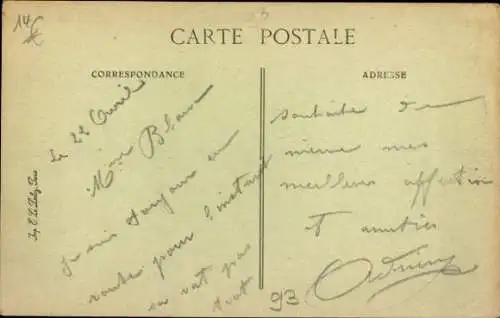 14 €
CARTE POSTALE
CORRESPONDANCE
ADRESSE
le 22 Avril
Mr Blanc
je suis toujours en
route pour l'instant
sa vat pas
trot
souhaite de
meme mes
meilleurs affection
et amitiés
93